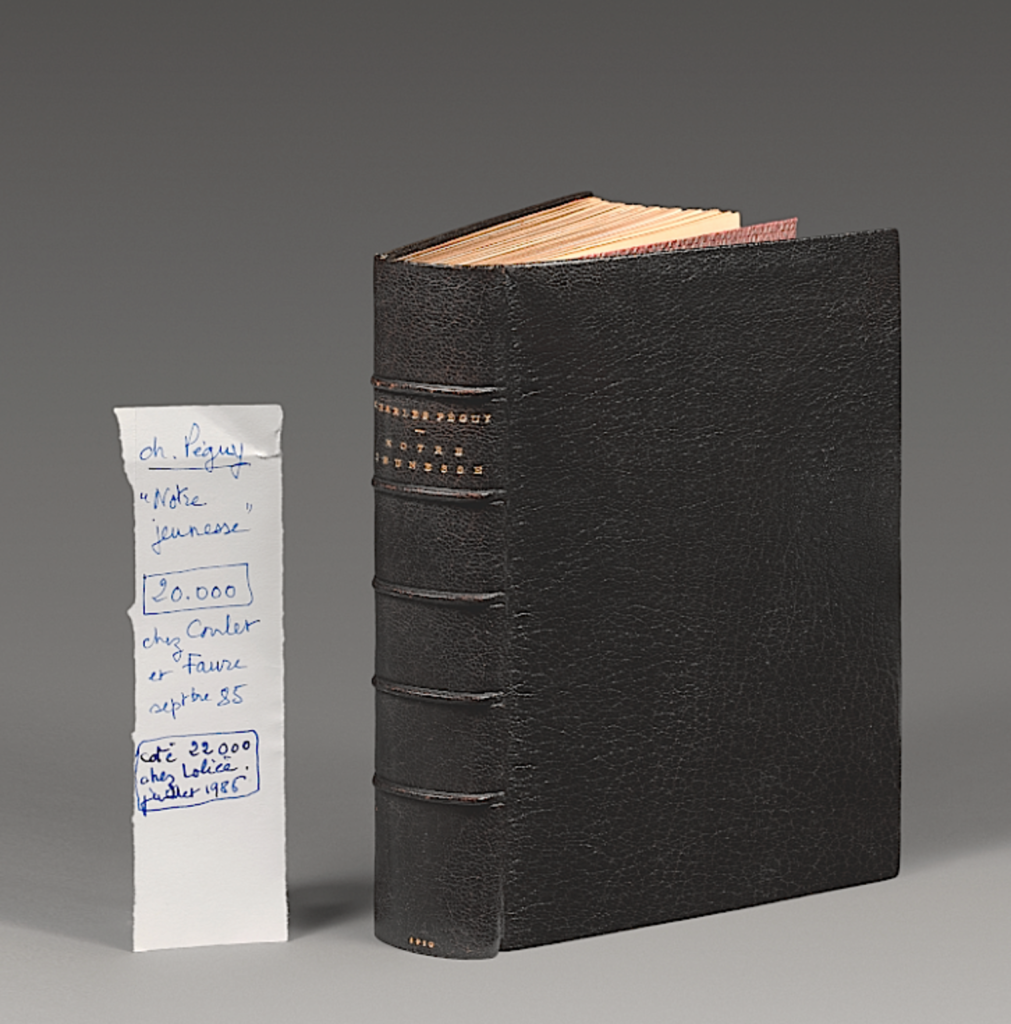 ch. Péguy
"Notre
jeunesse"
20.000
chez Coulet
et Faure
septbre 85
coté 22.000
chez Loliée.
juillet 1986
CHARLES PÉGUY
NOTRE
JEUNESSE
1910